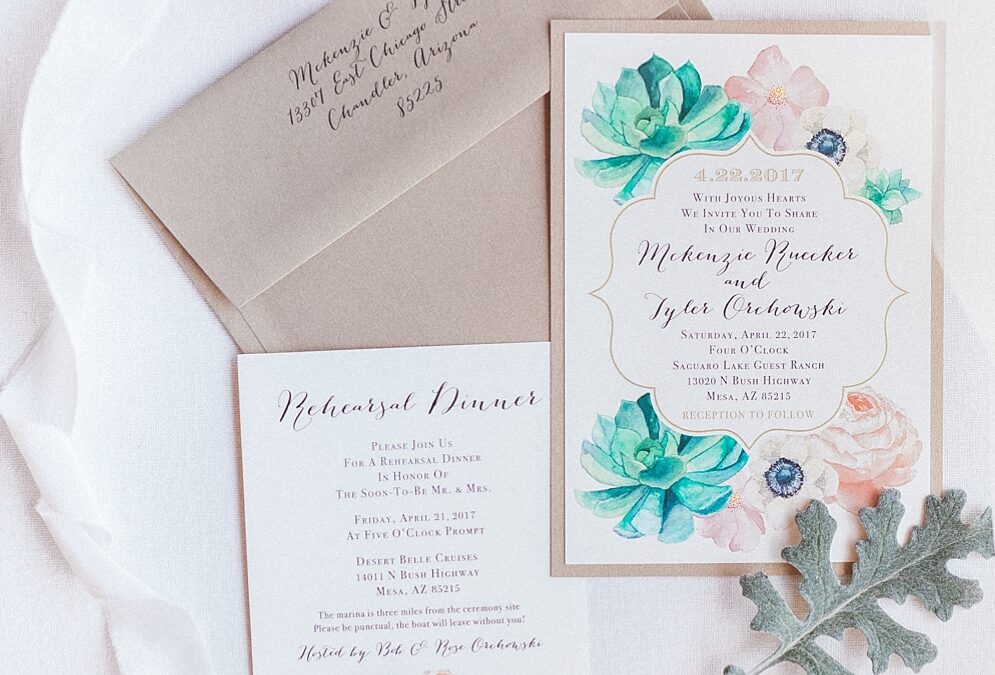 Mckenzie &
13307 East Chicago
Chandler, Arizona
85225
4.22.2017
With Joyous Hearts
We Invite You To Share
In Our Wedding
Mckenzie Ruecker
and
Tyler Orchowski
Saturday, April 22, 2017
Four O'Clock
Saguaro Lake Guest Ranch
13020 N Bush Highway
Mesa, AZ 85215
RECEPTION TO FOLLOW
Rehearsal Dinner
Please Join Us
For A Rehearsal Dinner
In Honor Of
The Soon-To-Be Mr. & Mrs.
Friday, April 21, 2017
At Five O'Clock Prompt
Desert Belle Cruises
14011 N Bush Highway
Mesa, AZ 85215
The marina is three miles from the ceremony site
Please be punctual, the boat will leave without you!
Hosted by Bob & Rose Orchowski